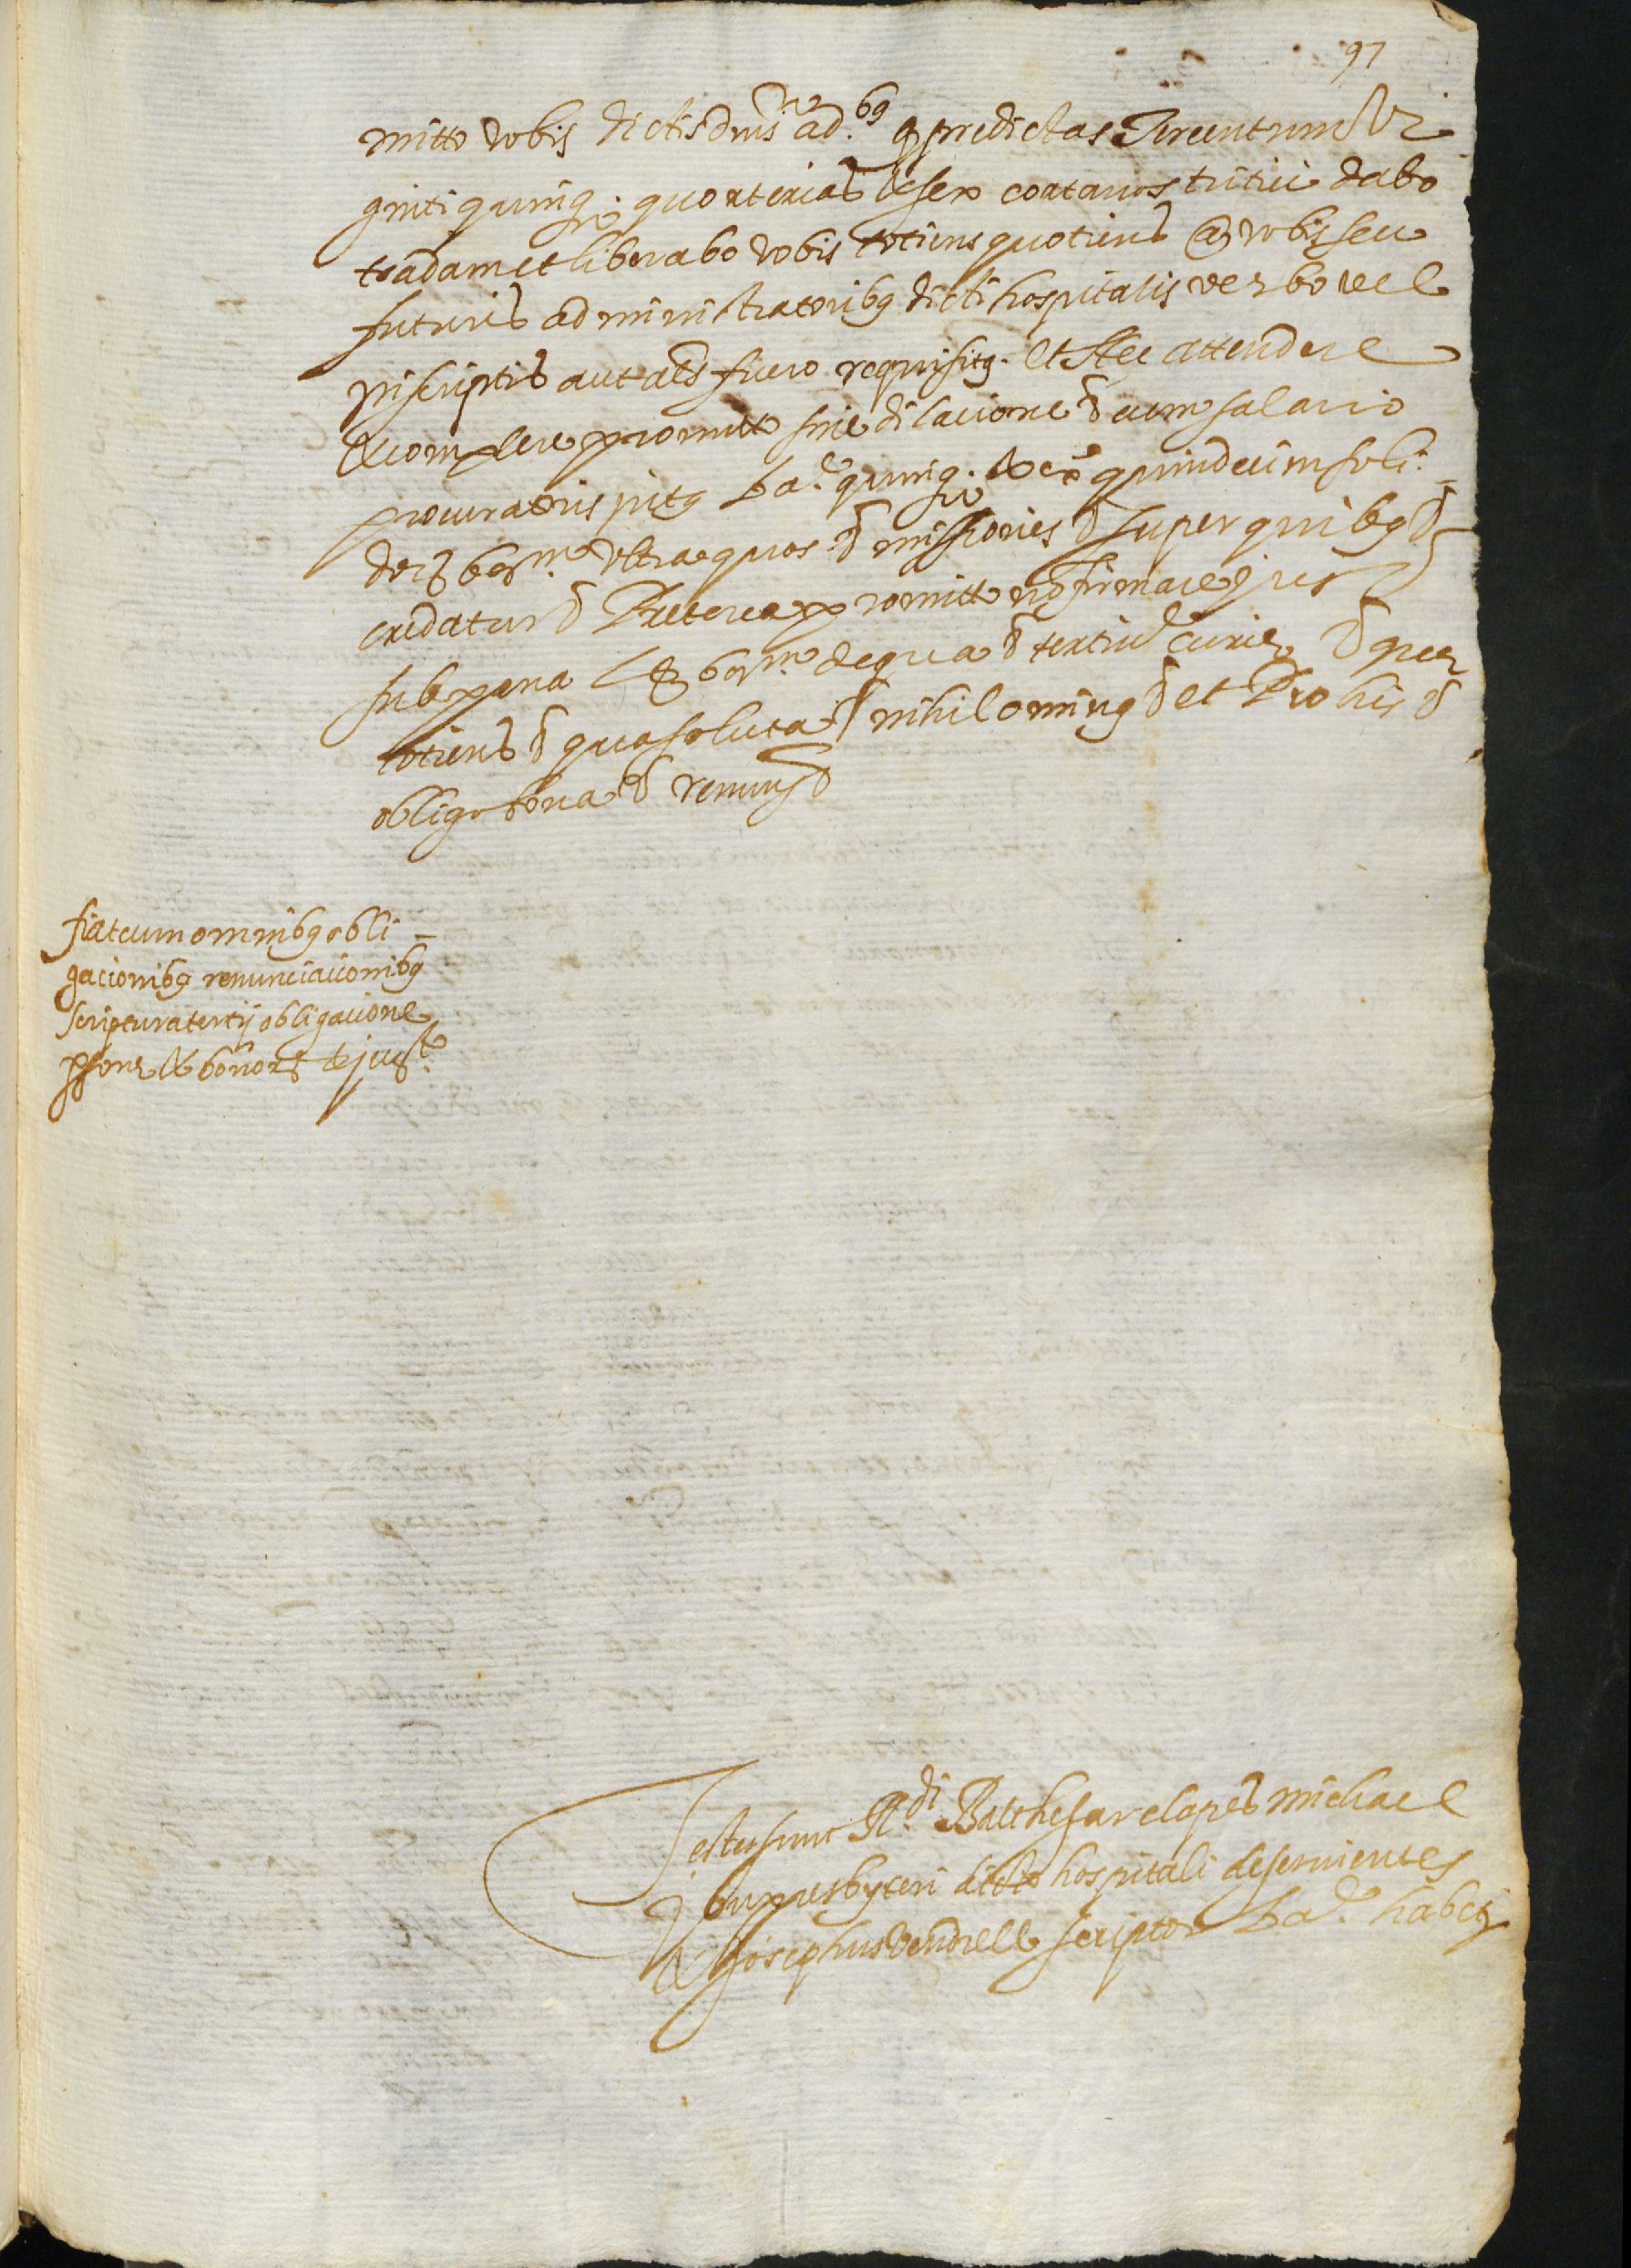 97
mitto vobis dictis dnis ad.bg q predictas Tercentum Vi
ginti quinq. quarterias & sex cortanos tritici dabo
tradam et liberabo vobis totiens quotiens @ vobis seu
futuris administratoribg dicti hospitalis verbo vel
inscriptis aut als fuero requisitg. et Hec attendere
& complere promitto sine dilacione & cum salario
procuratoris intg Ba.e quinq. & ex.a quindecim soli-
dorz bar.ne ultra quos & missiones & super quibg &
credatur & Preterea promitto nō firmare jus &
sub pena & bar.ne de qua & tertiū curie & que
totiens & qua soluta & nihiloming & et Pro his &
obligo bona & renun &
fiat cum omnibg obli-
gacionibg renunciacionibg
scriptura tertij obligacione
psone & bonorz & jur.t
Testes sunt R.di Balthesar clapes Michael
presbyteri dicto hospitali deservientes
& Josephus Vendrell scriptor Ba.e habes